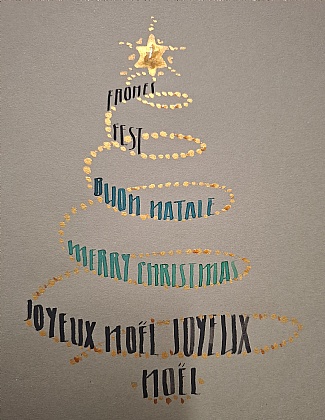 FROHES
FEST
BUON NATALE
MERRY CHRISTMAS
JOYEUX NOËL JOYEUX
NOËL